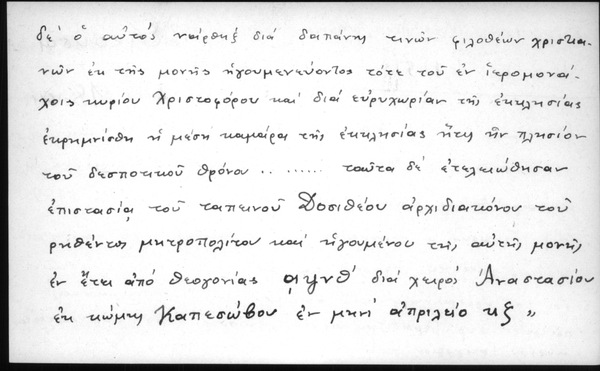 δὲ ὁ αὐτὸς ναίρθηξ διὰ δαπάνης τινῶν φιλοθέων χριστια-
νῶν ἐκ τῆς μονῆς ἡγουμενεύοντος τότε τοῦ ἐν ἱερομονά-
χοις κυρίου Χριστοφόρου καὶ διὰ εὐρυχωρίαν τῆς ἐκκλησίας
ἐκρημνίσθη ἡ μέση καμάρα τῆς ἐκκλησίας ἥτις ἦν πλησίον
τοῦ δεσποτικοῦ θρόνου .. ...... ταῦτα δὲ ἐτελειώθησαν
ἐπιστασίᾳ τοῦ ταπεινοῦ Δοσιθέου ἀρχιδιακόνου τοῦ
ρηθέντος μητροπολίτου καὶ ἡγουμένου τῆς αὐτῆς μονῆς
ἐν ἔτει ἀπὸ θεογονίας ͵αψνθ′ διὰ χειρὸς Ἀναστασίου
ἐκ κώμης Καπεσώβου ἐν μηνὶ ἀπριλείο κξ „